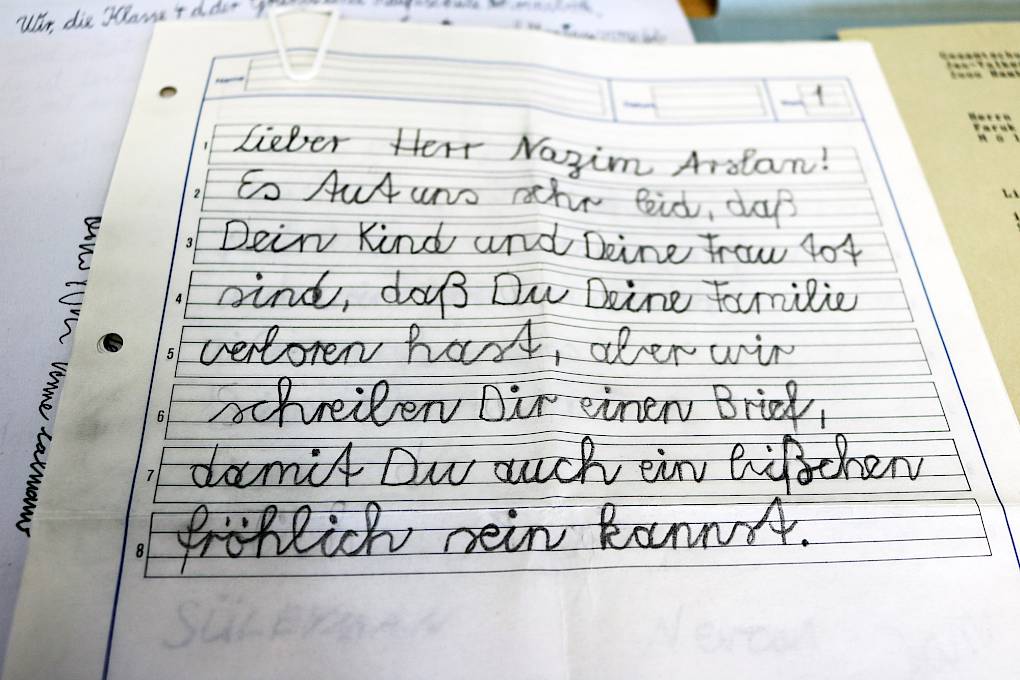 Wir, die Klasse 4d der
1
1 Lieber Herr Nazim Arslan!
2 Es tut uns sehr leid, daß
3 Dein Kind und Deine Frau tot
4 sind, daß Du Deine Familie
5 verloren hast, aber wir
6 schreiben Dir einen Brief,
7 damit Du auch ein bißchen
8 fröhlich sein kannst.
SÜLEYMAN
Herrn
Faruk